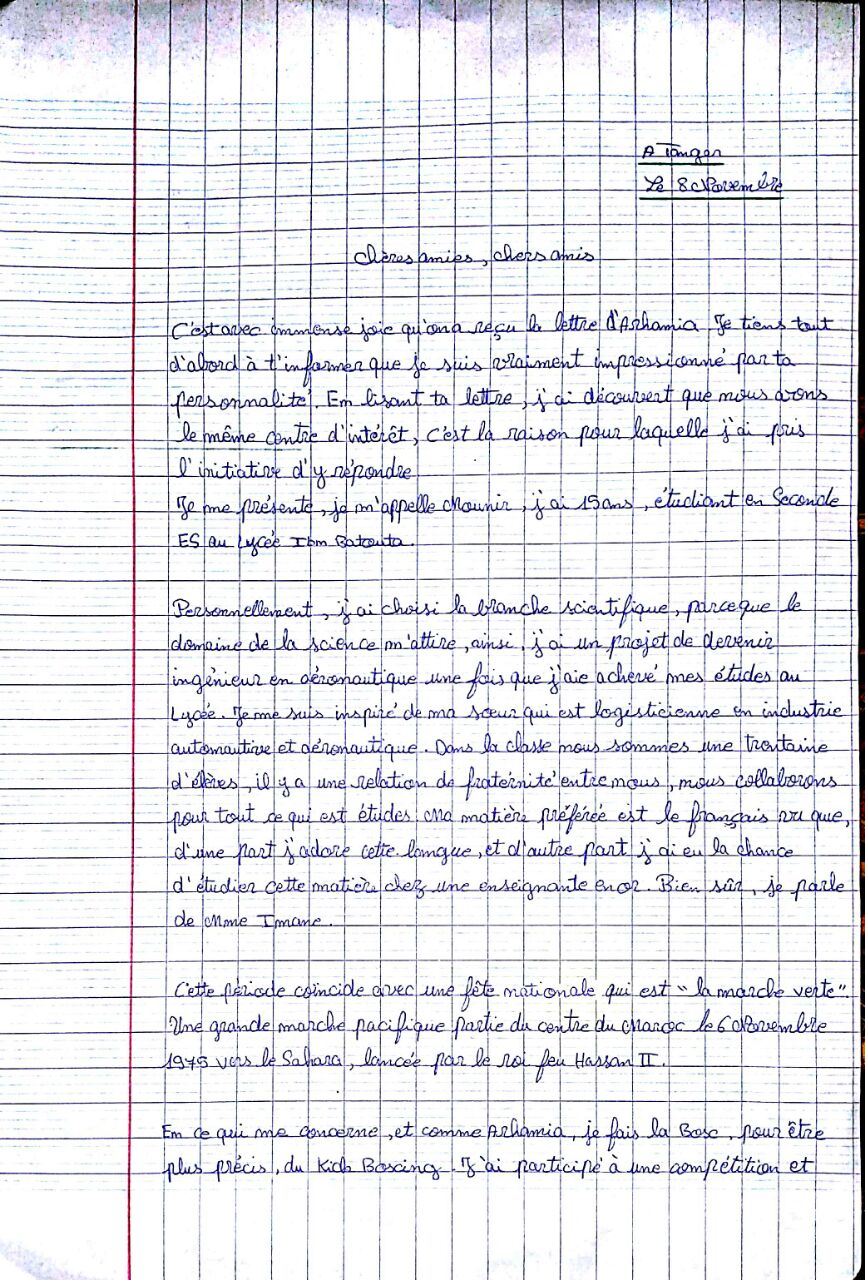 A Tanger
Le 8 Novembre
Chères amies, chers amis
C'est avec immense joie qu'on a reçu la lettre d'Arhamia. Je tiens tout
d'abord à t'informer que je suis vraiment impressionné par ta
personnalité. En lisant ta lettre, j'ai découvert que nous avons
le même centre d'intérêt, c'est la raison pour laquelle j'ai pris
l'initiative d'y répondre
Je me présente, je m'appelle Mounir, j'ai 15 ans, étudiant en Seconde
ES au Lycée Ibn Batouta.
Personnellement, j'ai choisi la branche scientifique, parceque le
domaine de la science m'attire, ainsi, j'ai un projet de devenir
ingénieur en aéronautique une fois que j'aie achevé mes études au
Lycée. Je me suis inspiré de ma sœur qui est logisticienne en industrie
automautive et aéronautique. Dans la classe nous sommes une trentaine
d'élèves, il y a une relation de fraternité entre nous, nous collaborons
pour tout ce qui est études. Ma matière préférée est le français vu que,
d'une part j'adore cette langue, et d'autre part j'ai eu la chance
d'étudier cette matière chez une enseignante en or. Bien sûr, je parle
de Mme Imane.
Cette période coincide avec une fête nationale qui est "la marche verte".
Une grande marche pacifique partie du centre du Maroc le 6 Novembre
1975 vers le Sahara, lancée par le roi feu Hassan II.
En ce qui me concerne, et comme Arhamia, je fais la Boxe, pour être
plus précis, du Kick Boxing. J'ai participé à une compétition et